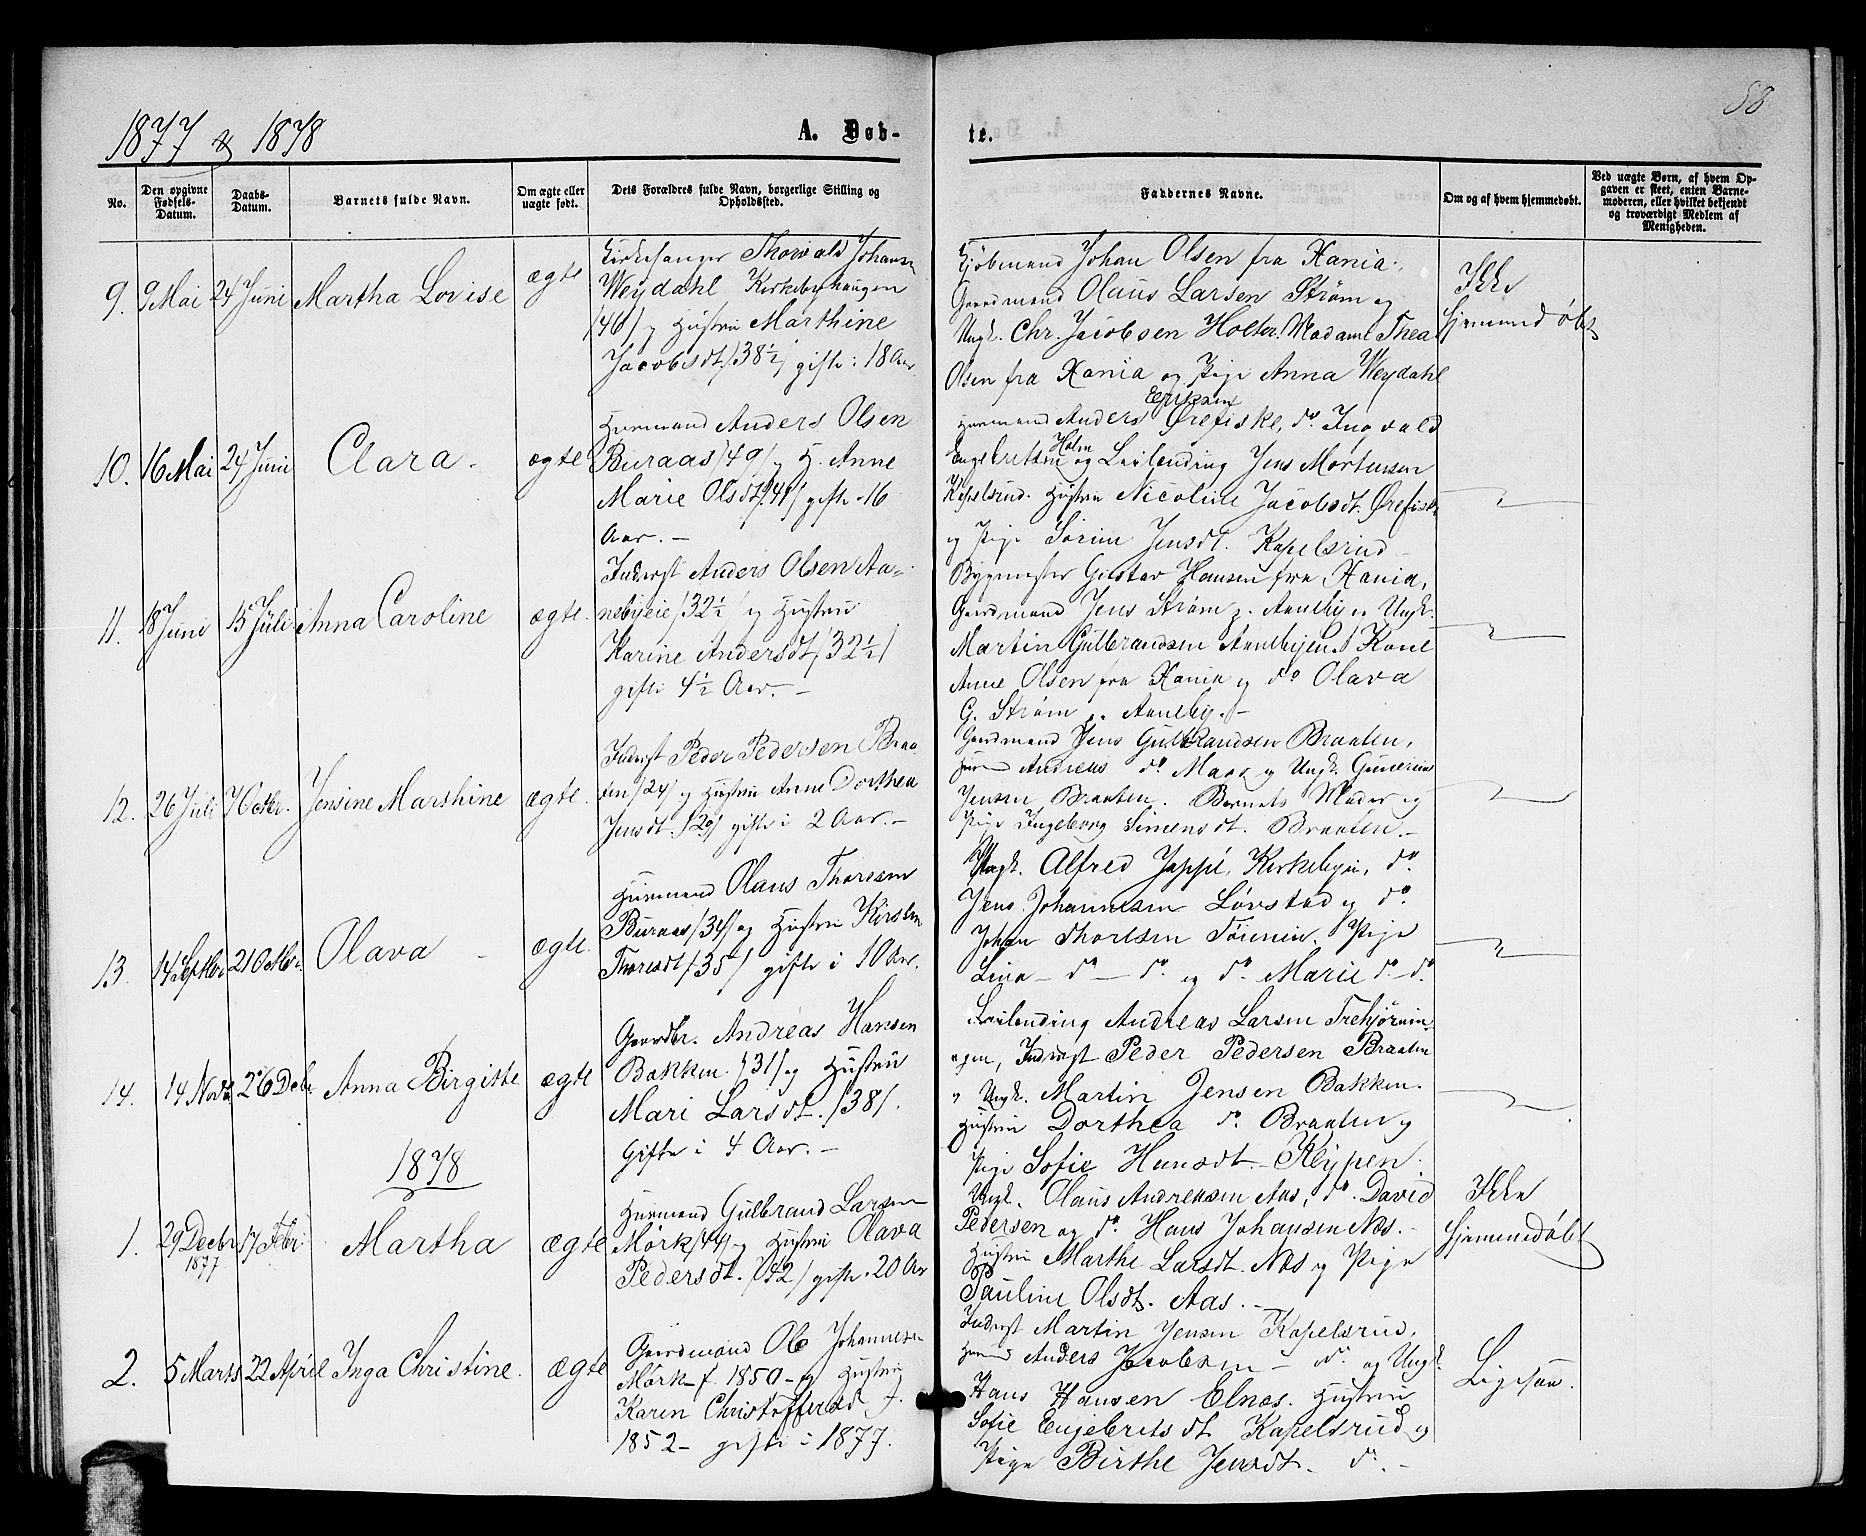 58
1877 & 1878
A. Døb-
te.
No.
Den opgivne Fødsels-Datum.
Daabs-Datum.
Barnets fulde Navn.
Om ægte eller uægte født.
Dets Forældres fulde Navn, borgerlige Stilling og Opholdssted.
Faddernes Navne.
Om og af hvem hjemmedøbt.
Ved uægte Børn, af hvem Op-
gaven er skeet, enten Barne-
moderen, eller hvilket bekjendt
og troværdigt Medlem af
Menigheden.
9. 9 Mai 24 Juni Martha Lovise ægte
Kirkesanger Thorvald Johans
Weydahl Kirkebyhaugen
/46/ og Hustru Marthine
Jacobsdt. /38½/ gifte i 18 Aar.
Kjøbmand Johan Olsen fra Xania.
Gaardmand Olaus Larsen Strøm og
Ungk. Chr. Jacobsen Holter. Madame Thea
Olsen fra Xania og Pige Anna Weydahl
Ikke
hjemmedøbt
10. 16 Mai 24 Juni Clara. ægte
Huusmand Anders Olsen
Buraas /49/ og H. Anne
Marie Olsdt. /41/ gifte 16
Aar. -
Eriksen
Huusmand Anders Ørefiske, do Ingvald
Holm
Engebretsen og Leilending Jens Mortensen
Kapelsrud. Hustru Nicoline Jacobsdt. Ørefiske
og Pige Sørine Jensdt. Kapelsrud -
11. 18 Juni 15 Juli Anna Caroline ægte.
Inderst Anders Olsen Aa-
nebyeie /32½/ og Hustru
Karine Andersdt /32½/
gifte 4½ Aar. -
Bygmester Gustav Hansen fra Xania,
Gaardmand Jens Strøm p. Aaneby og Ungk.
Martin Gulbrandsen Aanebyen. Kone
Anne Olsen fra Xania og do Olava
G. Strøm p. Aaneby. -
12. 26 Juli 7 Octbr. Jensine Marthine ægte.
Inderst Peder Pedersen Braa
ten /24/ og Hustru Anne Dorthea
Jensdt. /29/ gifte i 2 Aar. -
Gaardmand Jens Gulbrandsen Braaten,
Huusmd Andreas do Maas og Ungk. Gunerius
Jensen Braaten. Barnets Moder og
Pige Ingeborg Simensdt. Braaten. -
13. 14 Septbr 21 Octbr. Olava - ægte.
Huusmand Olaus Thoresen
Buraas /34/ og Hustru Kirsten
Thoresdt /35/ gifte i 10 Aar.
Ungk. Alfred Jappé, Kirkebyen, do
Jens Johannesen Løvstad og do
Johan Thoresen Tøienin. Pige
Lina - do - do og do Marie do - do
14. 14 Novbr 26 Debr Anna Birgitte ægte
Gaardbr. Andreas Hansen
Bakken /31/ og Hustru
Mari Larsdt. /38/.
Gifte i 4 Aar. -
Leilending Andreas Larsen Trehjørnin-
gen, Inderst Peder Pedersen Braaten
" Ungk. Martin Jensen Bakken.
Hustru Dorthea do Braaten og
Pige Sofie Hansdt. -
1878
1. 29 Decbr 1877 17 Febr Martha ægte
Huusmand Gulbrand Larsen
Mørk /44/ og Hustru Olava
Pedersdt. /42/ gifte 20 Aar
Ungk. Olaus Andreasen Aas, do. David
Pedersen og do Hans Johansen Næs. -
Hustru Marthe Larsdt. Næs og Pige
Pauline Olsdt. Aas. -
Ikke
hjemmedøbt
2. 5 Marts 22 April Inga Christine. ægte
Gaardmand Ole Johannesen
Mørk f. 1850 - og Hustru
Karen Christoffersd f.
1852 - gifte i 1877.
Inderst Martin Jensen Kapelsrud,
Huusmd Anders Jacobsen - do og Ungk.
Hans Hansen Elnæs. Hustru
Sofie Engebretsdt Kapelsrud og
Pige Birthe Jensdt. do. -
Ligesaa.